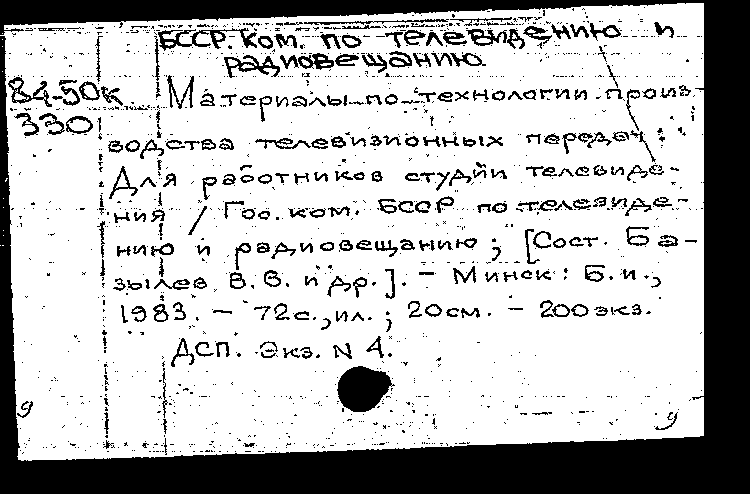 БССР. Ком. по телевидению и
радиовещанию.
84-50к
330
Материалы по технологии произ-
водства телевизионных передач:
Для работников студии телевиде-
ния / Гос. ком. БССР по телевиде-
нию и радиовещанию; [Сост. Ба-
зылев В.В. и др.]. - Минск: Б.и.,
1983. - 72с., ил.; 20см. - 200экз.
ДСП. Экз. N 4.
g
g